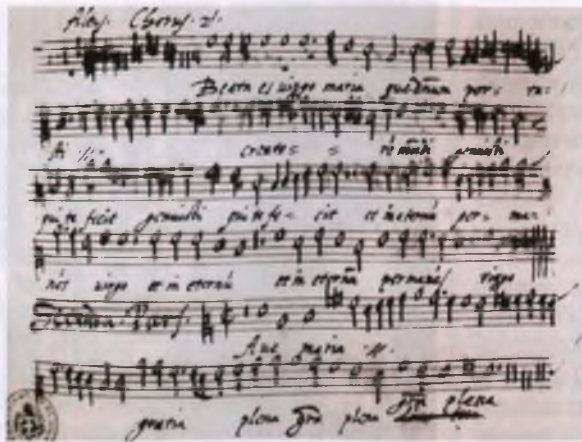 Altus. Chorus. 2.
Beata es virgo maria que dñum por= ta=
sti creato= = rē mūdi genuisti
qui te fecit genuisti qui te fe= cit et in eternū per= ma=
nes virgo et in eternū et in eternū permanes virgo
Secunda. Pars.
Aue maria
gratia plena grã plena grã plena